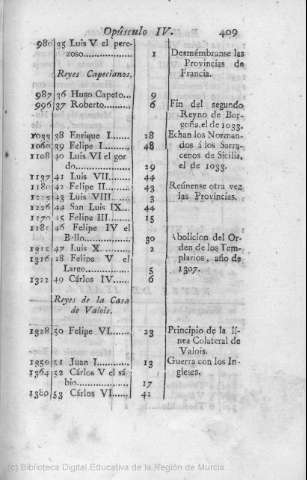 Opúsculo IV. 409
986 35 Luis V el pere-
zoso............ 1 Desmémbranse las
Provincias de
Francia.
Reyes Capecianos.
987 36 Hugo Capeto... 9
996 37 Roberto........ 6 Fin del segundo
Reyno de Bor-
goña, el de 1033.
38 Enrique I...... 28 Echan los Norman-
1060 39 Felipe I....... 48 dos á los Sarra-
1108 40 Luis VI el gor- cenos de Sicilia,
do............ 29 el de 1033.
1137 41 Luis VII....... 44
1180 42 Felipe II...... 43 Reúnense otra vez
43 Luis VIII...... 3 las Provincias.
1226 44 San Luis IX... 44
1270 45 Felipe III..... 15
46 Felipe IV el
Bello.......... 30 Abolicion del Or-
47 Luis X......... 2 den de los Tem-
1316 48 Felipe V el plarios, año de
Largo......... 5 1307.
1322 49 Cárlos IV...... 6
Reyes de la Casa
de Valois.
1328 50 Felipe VI...... 23 Principio de la lí-
nea Colateral de
Valois.
1350 51 Juan I......... 13 Guerra con los In-
1364 52 Cárlos V el sá- gleses.
bio............ 17
1380 53 Cárlos VI..... 42
(c) Biblioteca Digital Educativa de la Región de Murcia